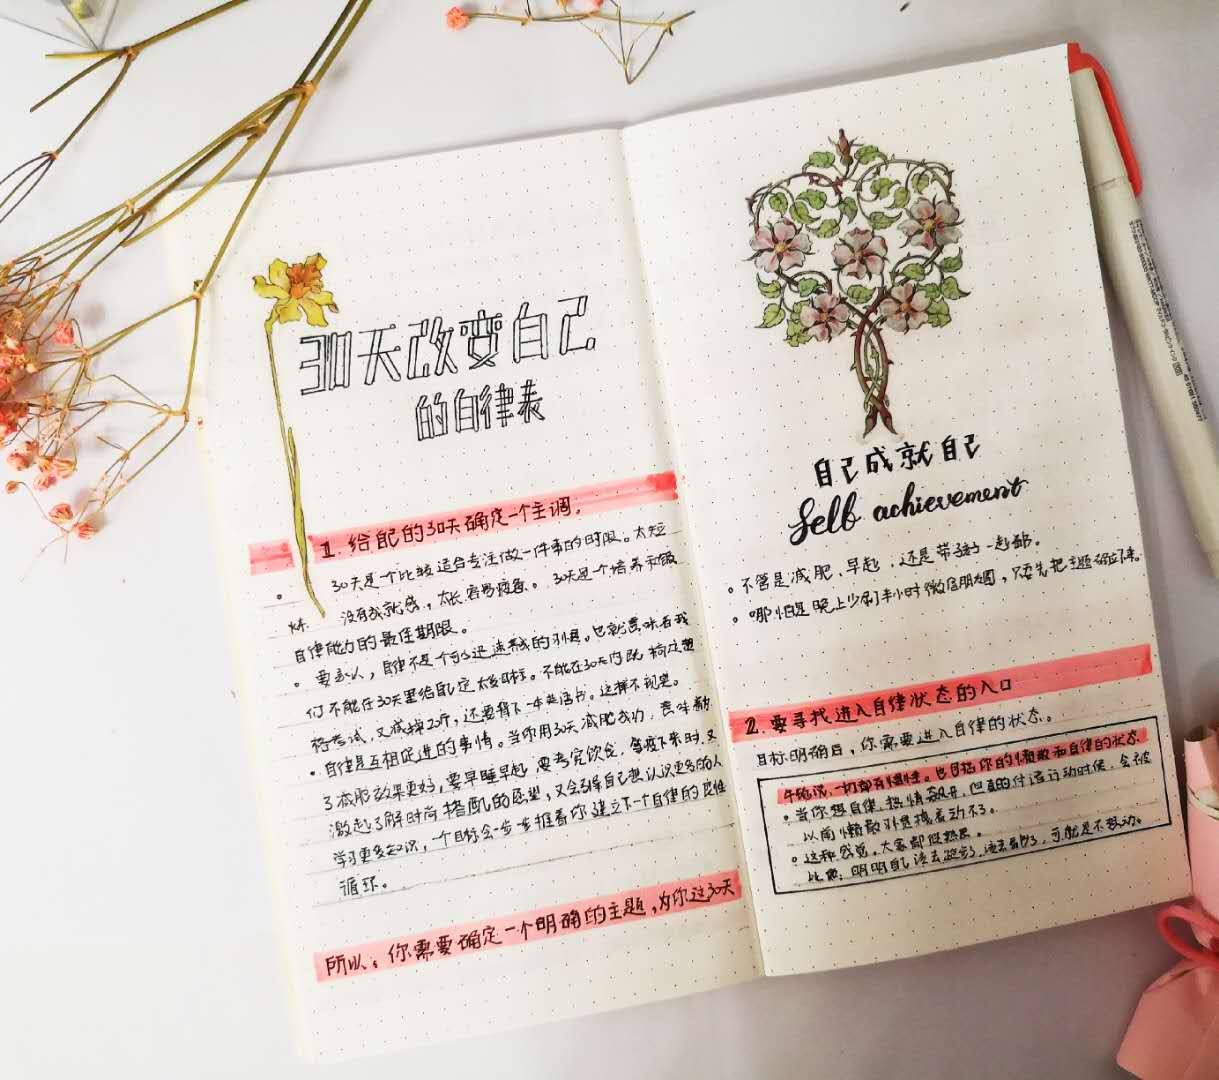 30天改变自己
的自律表
1. 给自己的30天确定一个主调。
。 30天是一个比较适合专注做一件事的时限。太短
没有成就感，太长容易疲惫。30天是个培养和锻
炼
自律能力的最佳期限。
。 要承认，自律不是一个可以迅速养成的习惯。也就意味着我
们不能在30天里给自己定太多目标。不能在30天内既搞定
资格考试，又减掉20斤，还要背下一本英语书。这样不现实。
• 自律是互相促进的事情。当你用30天减肥成功，意味着
了减肥效果更好，要早睡早起，要考究饮食，等瘦下来时，又
激起了解时尚搭配的愿望，又会引导自己想认识更多的人
学习更多知识，一个目标会一步一步推着你建立下一个自律的良性
循环。
所以：你需要确定一个明确的主题，为你这30天
自己成就自己
Self achievement
。不管是减肥、早起，还是带孩子一起都。
。哪怕是晚上少刷半小时微信朋友圈，只要先把主题确定下来。
2. 要寻找进入自律状态的入口
目标明确后，你需要进入自律的状态。
牛顿说，一切都有惯性。也包括你的懒散和自律的状态
。当你想自律，热情飙升，但真的付诸行动时候，会被
以前懒散习惯拽着动不了。
。这种感觉，大家都很熟悉。
比如：明明自己该去跑步了，该去看书了，可就是不想动。